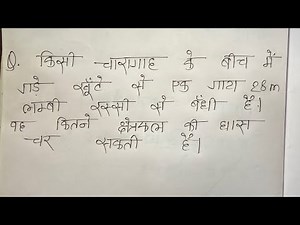 Q. किसी चारागाह के बीच में
गड़े खूँटे से एक गाय 28m
लम्बी रस्सी से बँधी है।
वह कितने क्षेत्रफल की घास
चर सकती है।